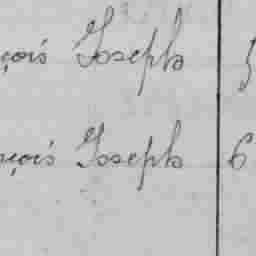 çois Joseph 5
nçois Joseph 6